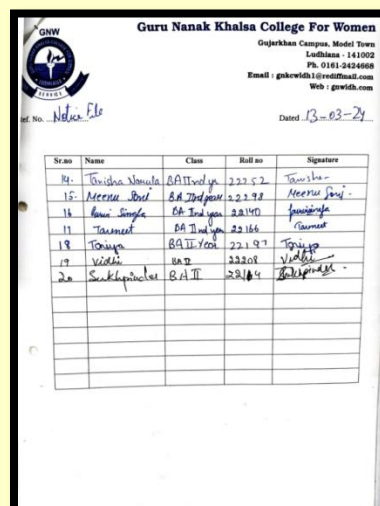 GNW
Guru Nanak Khalsa College For Women
Gujarkhan Campus, Model Town
Ludhiana - 141002
Ph. 0161-2424668
Email : gnkcwldh1@rediffmail.com
Web : gnwldh.com
SERVICE
Ref. No. Notice File Dated 13-03-24
Sr.no Name Class Roll no Signature
14. Tanisha Narula BA IInd yr 22252 Tanisha
15. Meenu Soni B.A IInd year 22298 Meenu Soni
16 Singla BA IInd year 22140
17 Tanmeet BA IInd year 22166 Tanmeet
18 Taniya BA II Year 22197 Taniya
19 Vidhi BA II 22208 Vidhi
20 Sukhpinder BA II Sukhpinder